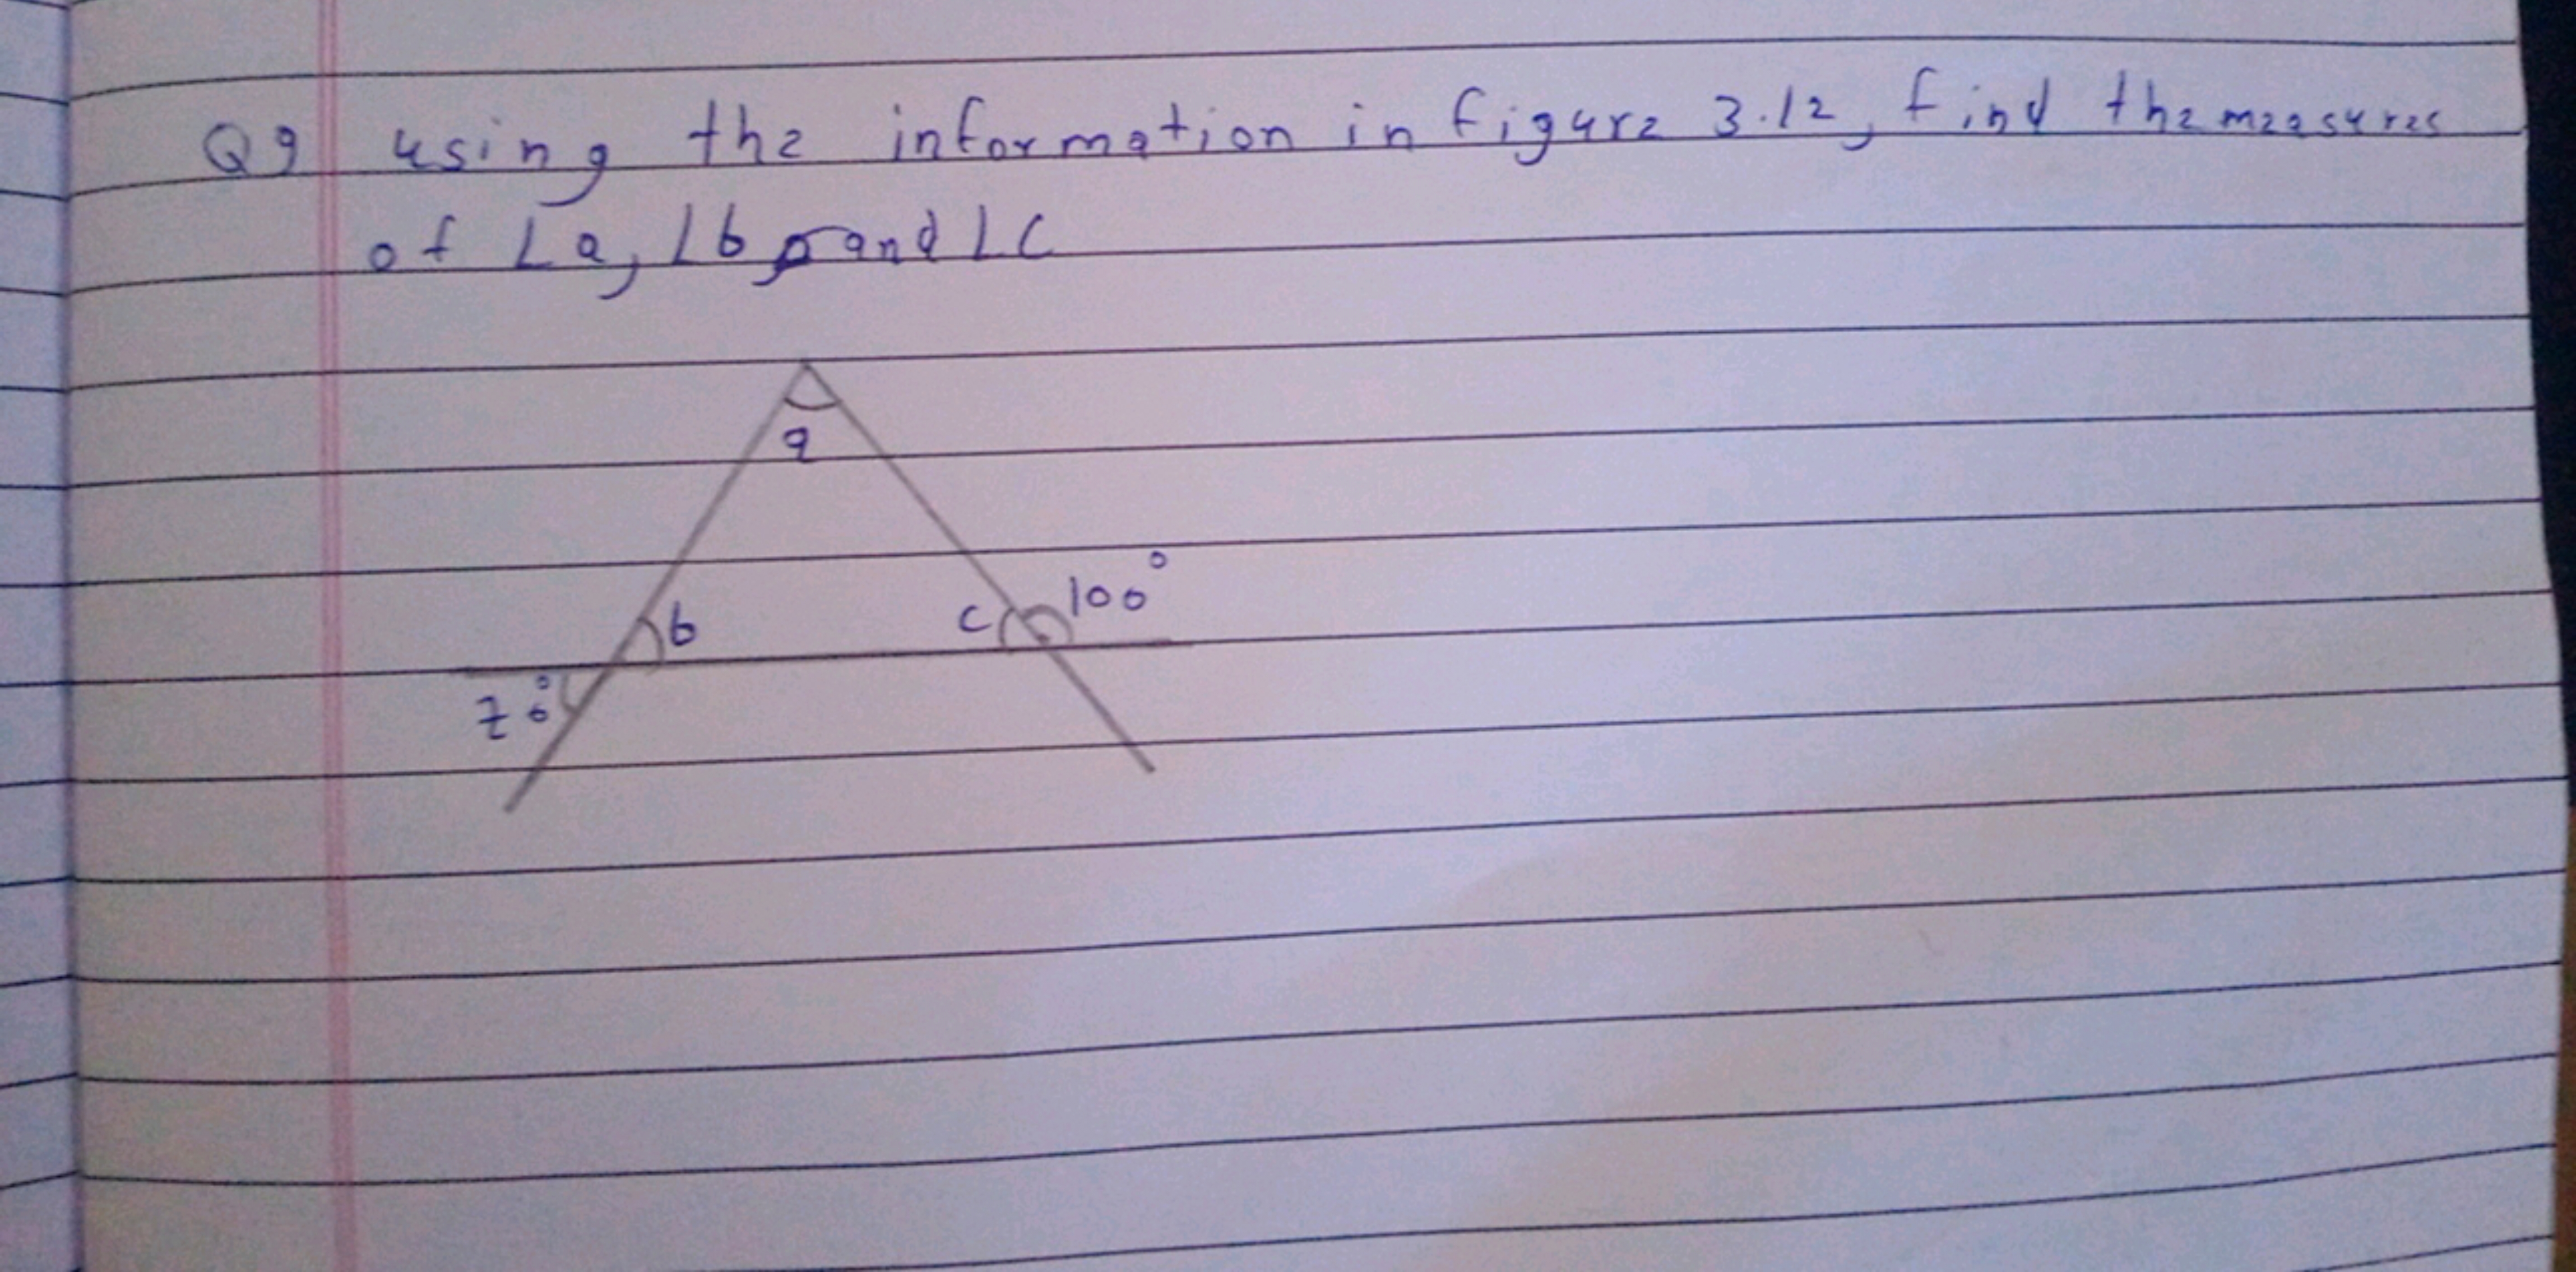 Q9 using the information in figure 3.12, find the measures
of ∠a, ∠b and ∠c
a
b
c
100°
70°